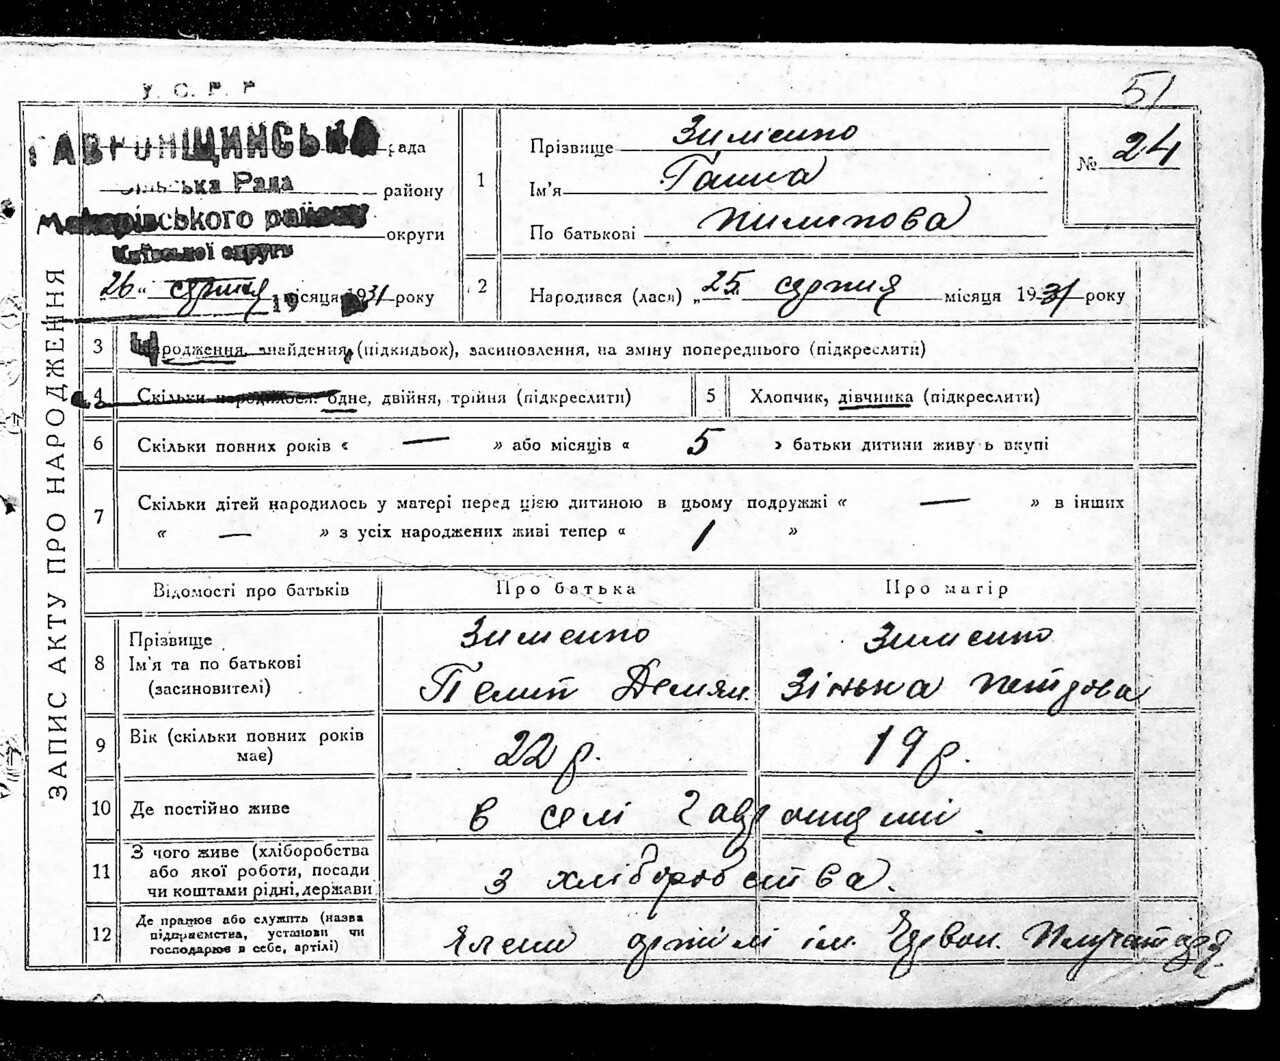 У. С. Р. Р
51
ГАВРОНЩИНСЬКА рада
Сільська Рада району
Макарівського району округи
Київської округи
26 „ серпня місяця 1931 року
19
ЗАПИС АКТУ ПРО НАРОДЖЕННЯ
1 Прізвище Зименко
Ім'я Ганна
По батькові Пилипова
№ 24
2 Народився (лася) „25 серпня місяця 1931 року
3 Народження, знайдення, (підкидьок), засиновлення, на зміну попереднього (підкреслити)
4 Скільки народилося: одне, двійня, трійня (підкреслити)
5 Хлопчик, дівчинка (підкреслити)
6 Скільки повних років « — » або місяців « 5 » батьки дитини живуть вкупі
7 Скільки дітей народилось у матері перед цією дитиною в цьому подружжі « — » в інших
« — » з усіх народжених живі тепер « 1 »
Відомості про батьків Про батька Про матір
8 Прізвище
Ім'я та по батькові
(засиновителі)
Зименко
Пелип Демян.
Зименко
Зінька Петрова
9 Вік (скільки повних років
має)
22 р. 19 р.
10 Де постійно живе в селі Гавронщині
11 З чого живе (хліборобства
або якої роботи, посади
чи коштами рідні, держави
з хліборобства.
12 Де працює або служить (назва
підприємства, установи чи
господарює в себе, артілі)
Члени артілі ім. Червон.